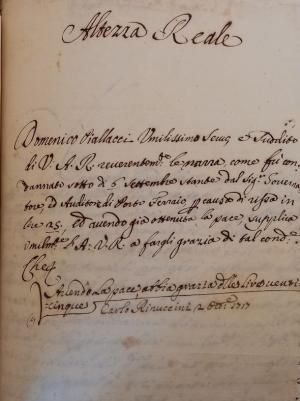 Altezza Reale
Domenico Viallacci Umilissimo Serv.e e Suddito
di V. A. R. reverentem.te le narra, come fù con-
dannato sotto dì 6 Settembre stante dal Sig.r Governa-
tore, ed Auditore di Porto Ferraio p causa di rissa in
lire 25, ed avendo già ottenuta la pace, supplica
umilm.te l'A: V: R: a fargli grazia di tal cond.ne
Che
Avendo la pace, abbia grazia delle lire venti
cinque Carlo Rinuccini 2 Ott.re 1717